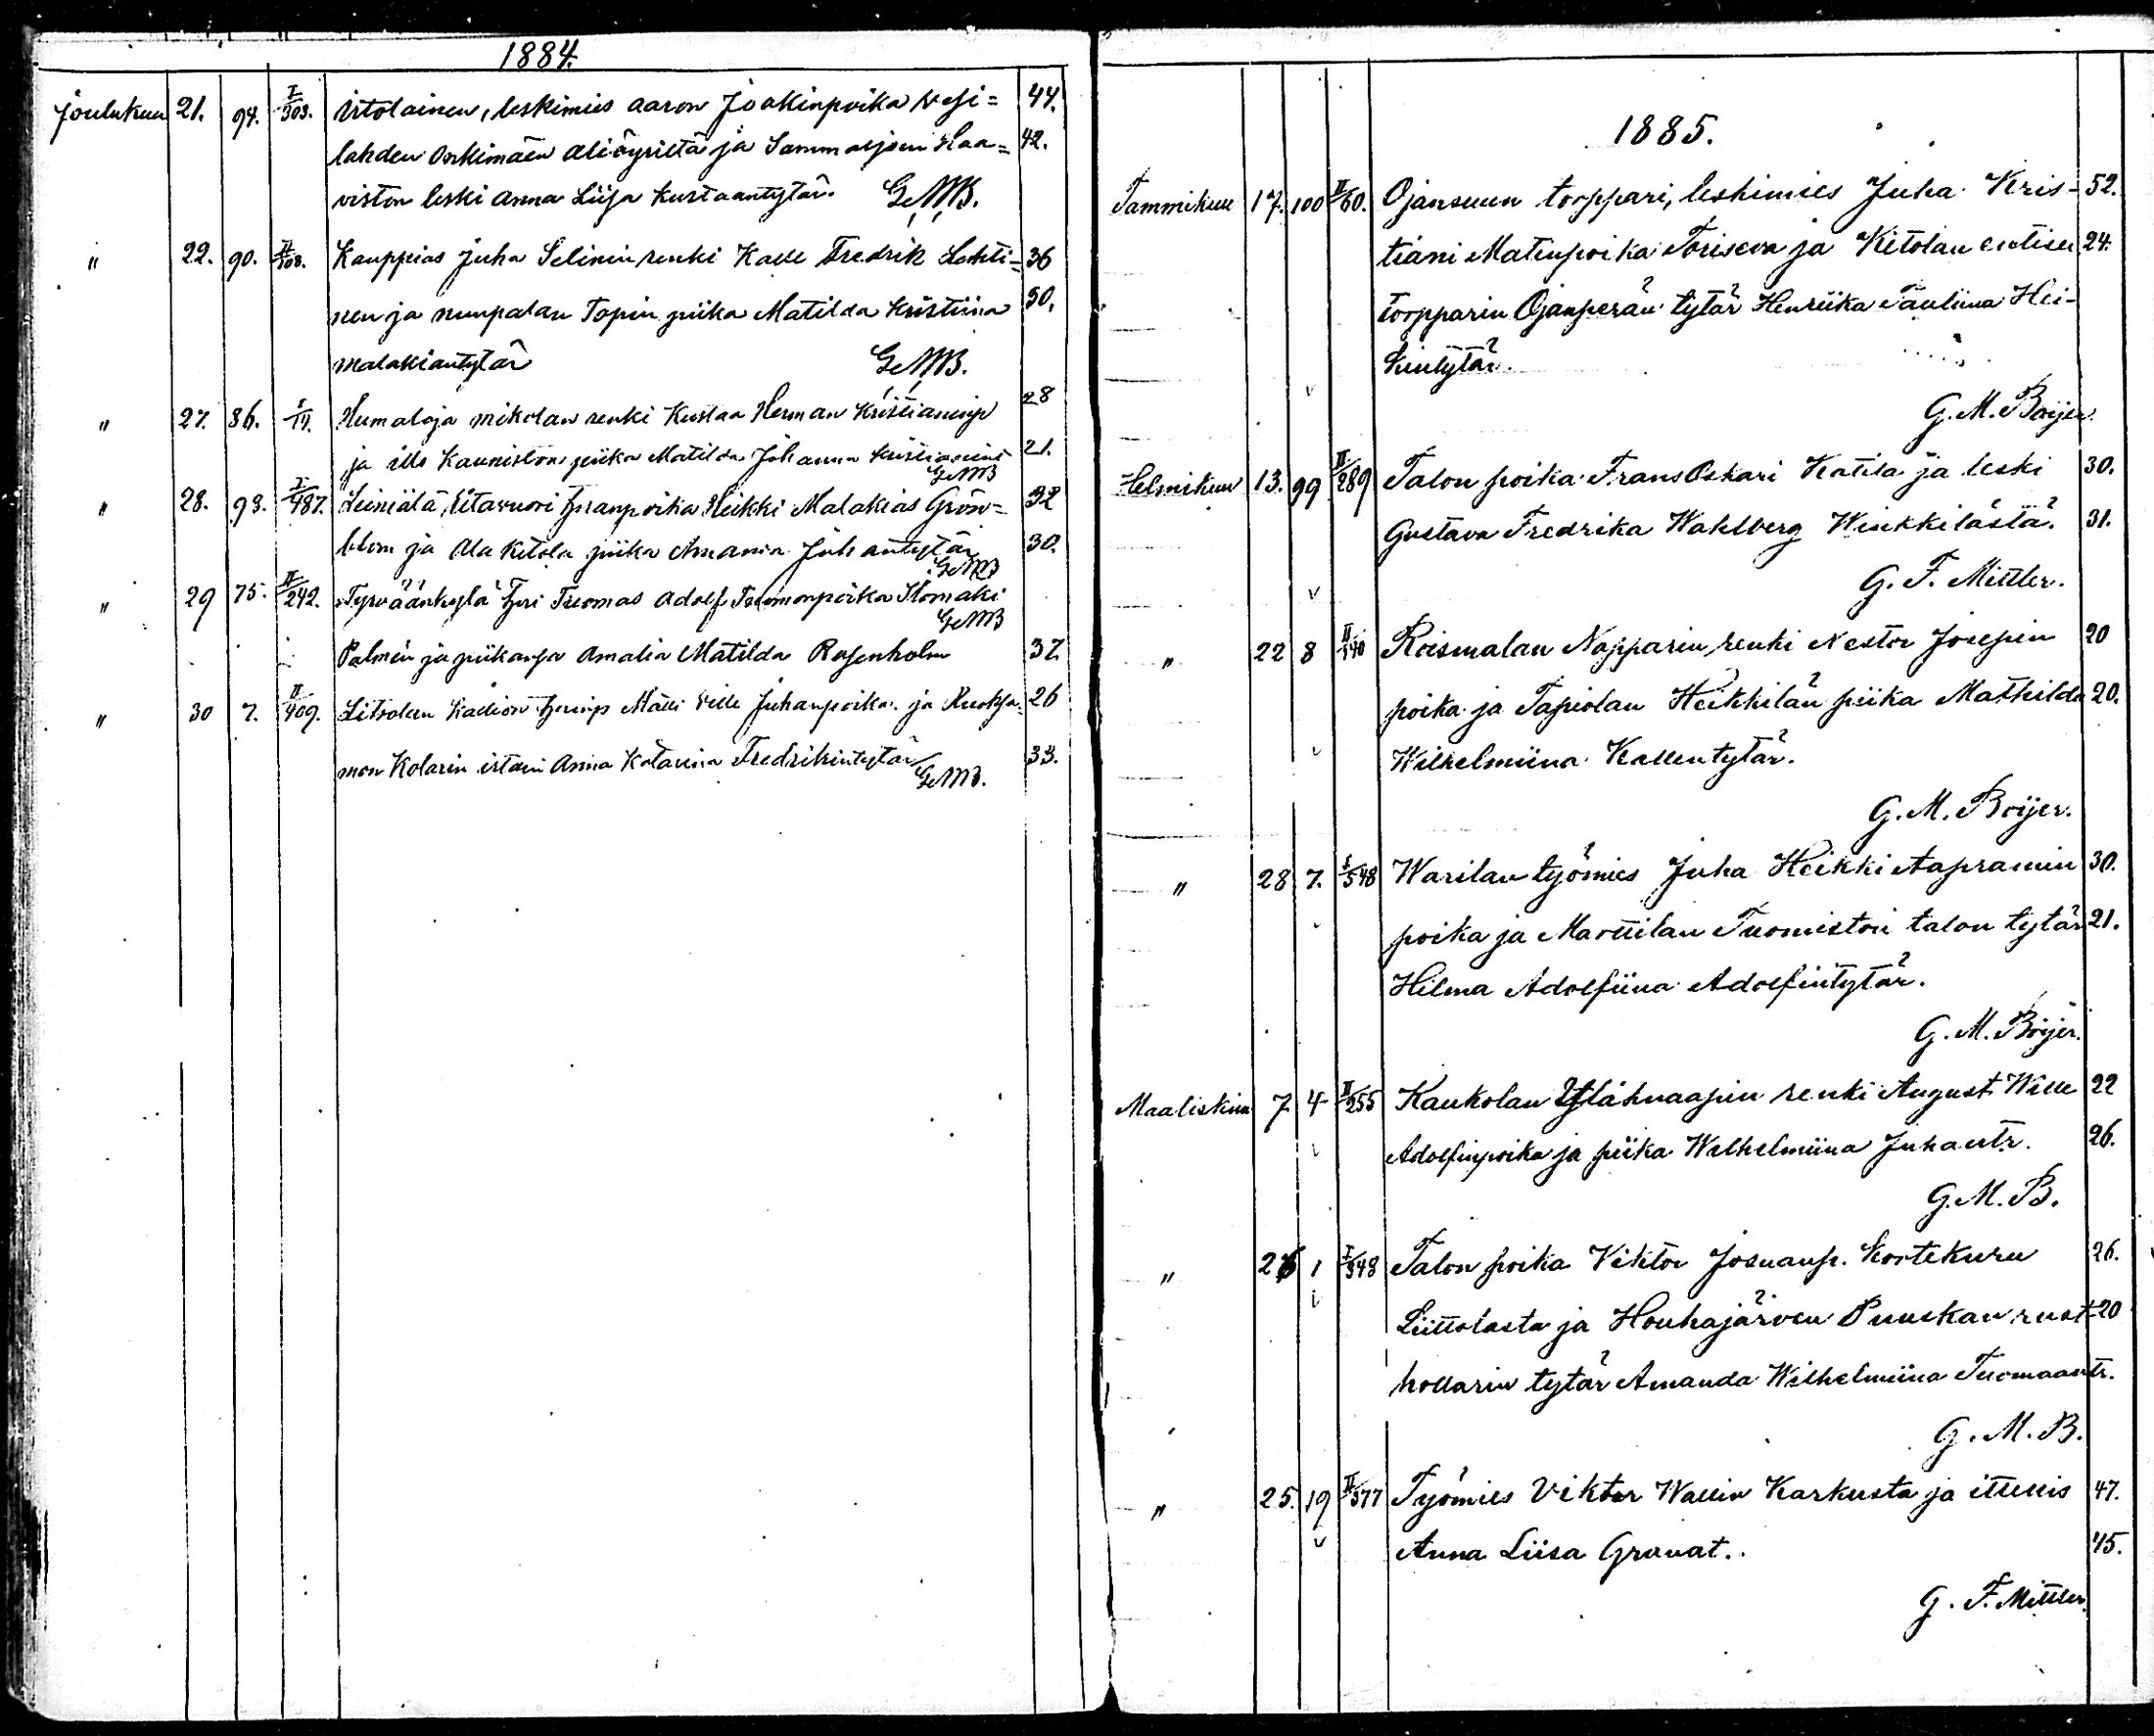 1884.
Joulukuu 21. 94. I/303. irtolainen, leskimies Aaron Joakinpoika Vesi= 44.
lahden Onkimäen Aliöyriltä ja Sammaljoen Haa= 42.
viston leski Anna Liisa Kustaantytär. G.M.B.
" 22. 90. II/508. Kauppias Juha Selinin renki Kalle Fredrik Lehti= 36
nen ja nunpalan Topin piika Matilda Kristiina 50.
Malakiantytär G.M.B.
" 27. 86. Humaloja mikolan renki Kustaa Herman Kristianinp 28
ja Kauniston piika Matilda Johanna 21.
G.M.B
" 28. 93. I/487. Leiniälä, Ritavuori poika Heikki Malakias Grön= 32
blom ja Ala Ketola piika Amanda Juhantytär 30.
G.M.B
" 29 75. II/242. Tyrväänkylä Tuomas Adolf Tuomonpoika
G.M.B
Palmén ja piikansa Amalia Matilda Rosenholm 37.
" 30 7. II/409. Liitsolan Kallion Ville Juhanpoika ja Ruoksa= 26
mon Kolarin Anna Katariina Fredrikintytär 33.
G.M.B.
1885.
Tammikuu 17. 100 II/60. Ojansuun torppari, leskimies Juha Kris- 52.
tiani Matinpoika Toriseva ja Kitolan entisen 24.
torpparin Ojanperän tytär Henriika Pauliina Hei-
kintytär.
G. M. Boijer.
Helmikuu 13. 99 II/289 Talon poika Frans Oskari Katila ja leski 30.
Gustava Fredrika Wahlberg Winkkilästä. 31.
G. F. Mittler.
" 22 8 II/140 Roismalan Napparin renki Nestor Josepin 20
poika ja Tapiolan Heikkilän piika Mathilda 20.
Wilhelmiina Kallentytär.
G. M. Boijer.
" 28 7. I/548 Warilan työmies Juha Heikki Aapramin 30.
poika ja Marttilan Tuomiston talon tytär 21.
Hilma Adolfiina Adolfintytär.
G. M. Boijer.
Maaliskuu 7 4 II/255 Kaukolan Ylähnaapin renki August Wille 22
Adolfinpoika ja piika Wilhelmiina Juhantr. 26.
G. M. B.
" 26 1 I/348 Talon poika Viktor Josuanp. Kortekuru 26.
Liittolasta ja Houhajärven Puuskan rust- 20
hollarin tytär Amanda Wilhelmiina Tuomaantr.
G. M. B.
" 25. 19 II/377 Työmies Viktor Wallin Karkusta ja itsellis 47.
Anna Liisa Granat. 45.
G. F. Mittler.